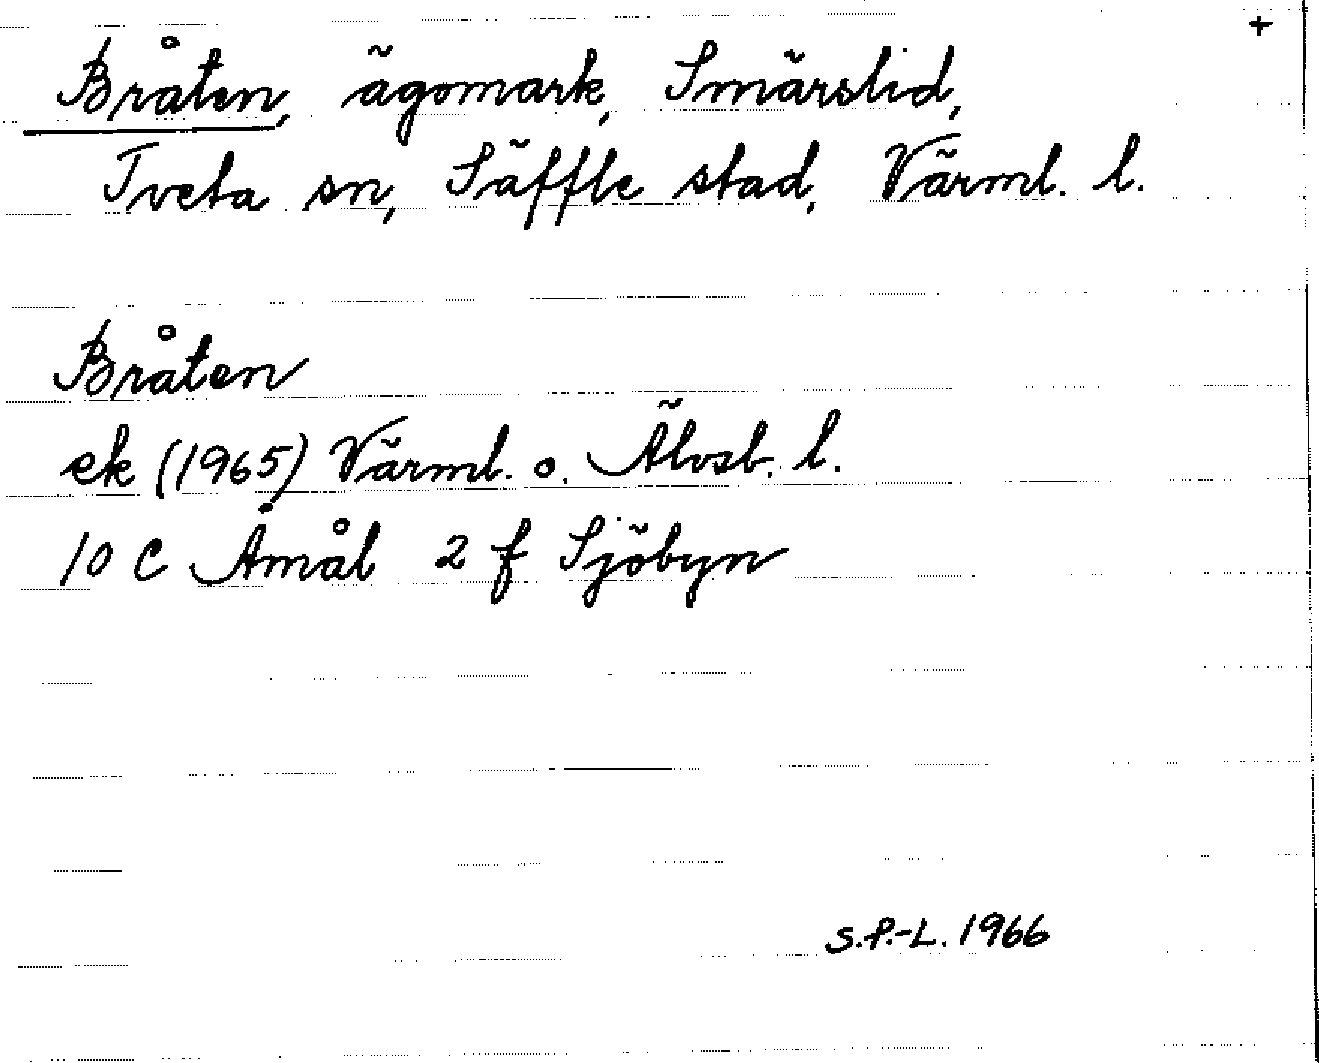 +
Bråten, ägomark, Smärslid,
Tveta sn, Säffle stad, Värml. l.
Bråten
ek (1965) Värml. o. Älvsb. l.
10 C Åmål 2 f Sjöbyn
S.P.-L. 1966